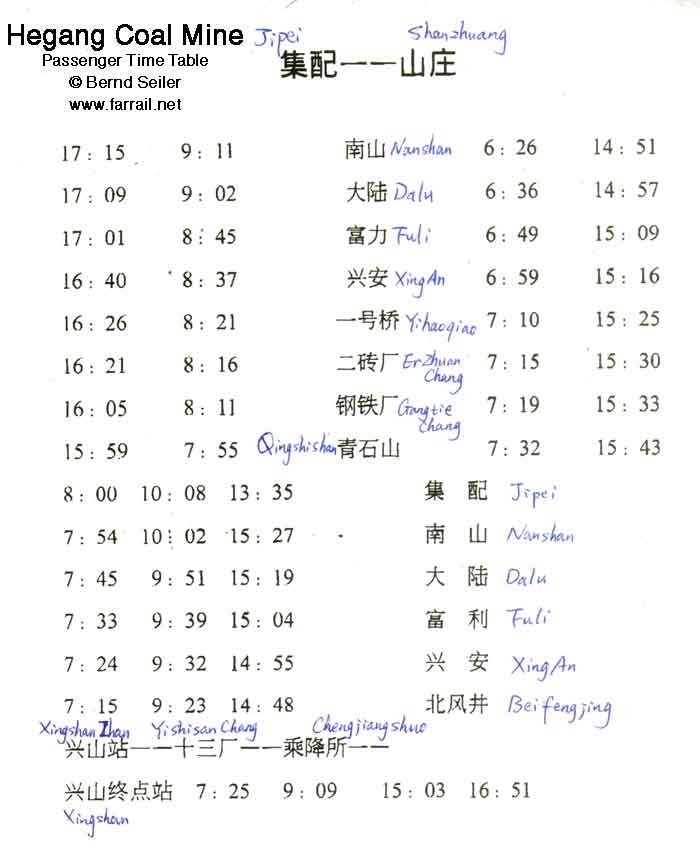 Hegang Coal Mine Jipei Shanzhuang
Passenger Time Table
© Bernd Seiler
www.farrail.net
集配一一山庄
17:15 9:11 南山 Nanshan 6:26 14:51
17:09 9:02 大陆 Dalu 6:36 14:57
17:01 8:45 富力 Fuli 6:49 15:09
16:40 8:37 兴安 XingAn 6:59 15:16
16:26 8:21 一号桥 Yihaoqiao 7:10 15:25
16:21 8:16 二砖厂 ErZhuan Chang 7:15 15:30
16:05 8:11 钢铁厂 Gangtie Chang 7:19 15:33
15:59 7:55 Qingshishan 青石山 7:32 15:43
8:00 10:08 13:35 集配 Jipei
7:54 10:02 15:27 南山 Nanshan
7:45 9:51 15:19 大陆 Dalu
7:33 9:39 15:04 富利 Fuli
7:24 9:32 14:55 兴安 XingAn
7:15 9:23 14:48 北风井 Beifengjing
Xingshan Zhan Yishisan Chang Chengjiangshuo
兴山站一一十三厂一一乘降所一一
兴山终点站 7:25 9:09 15:03 16:51
Xingshan